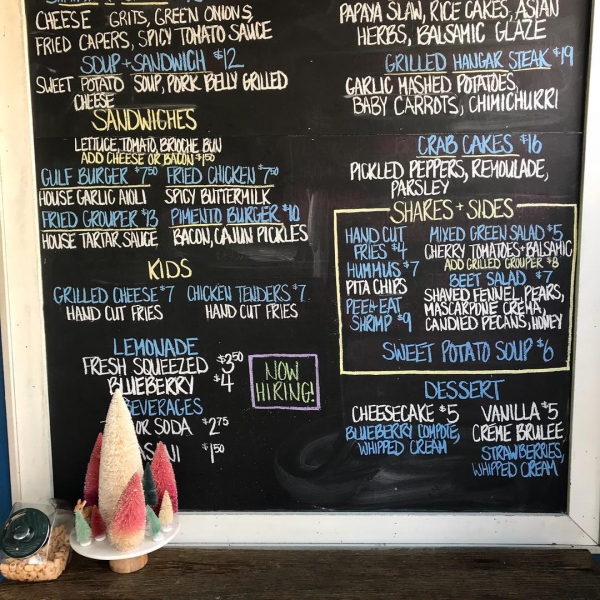 CHEESE GRITS, GREEN ONIONS,
FRIED CAPERS, SPICY TOMATO SAUCE
SOUP + SANDWICH $12
SWEET POTATO SOUP, PORK BELLY GRILLED
CHEESE
SANDWICHES
LETTUCE, TOMATO, BRIOCHE BUN
ADD CHEESE OR BACON $1.50
GULF BURGER $7.50 FRIED CHICKEN $7.50
HOUSE GARLIC AIOLI SPICY BUTTERMILK
FRIED GROUPER $13 PIMENTO BURGER $10
HOUSE TARTAR SAUCE BACON, CAJUN PICKLES
KIDS
GRILLED CHEESE $7 CHICKEN TENDERS $7
HAND CUT FRIES HAND CUT FRIES
LEMONADE
FRESH SQUEEZED $3.50
BLUEBERRY $4
BEVERAGES
OR SODA $2.75
$1.50
NOW
HIRING!
PAPAYA SLAW, RICE CAKES, ASIAN
HERBS, BALSAMIC GLAZE
GRILLED HANGAR STEAK $19
GARLIC MASHED POTATOES,
BABY CARROTS, CHIMICHURRI
CRAB CAKES $16
PICKLED PEPPERS, REMOULADE,
PARSLEY
SHARES + SIDES
HAND CUT
FRIES $4
HUMMUS $7
PITA CHIPS
PEEL + EAT
SHRIMP $9
MIXED GREEN SALAD $5
CHERRY TOMATOES + BALSAMIC
ADD GRILLED GROUPER $8
BEET SALAD $7
SHAVED FENNEL, PEARS,
MASCARPONE CREMA,
CANDIED PECANS, HONEY
SWEET POTATO SOUP $6
DESSERT
CHEESECAKE $5
BLUEBERRY COMPOTE,
WHIPPED CREAM
VANILLA $5
CRÈME BRULEE
STRAWBERRIES,
WHIPPED CREAM